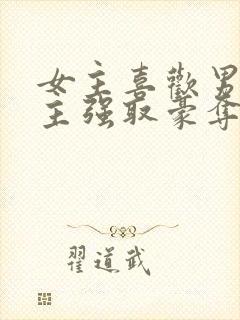 女主喜歡男
主强取豪奪
翟道武